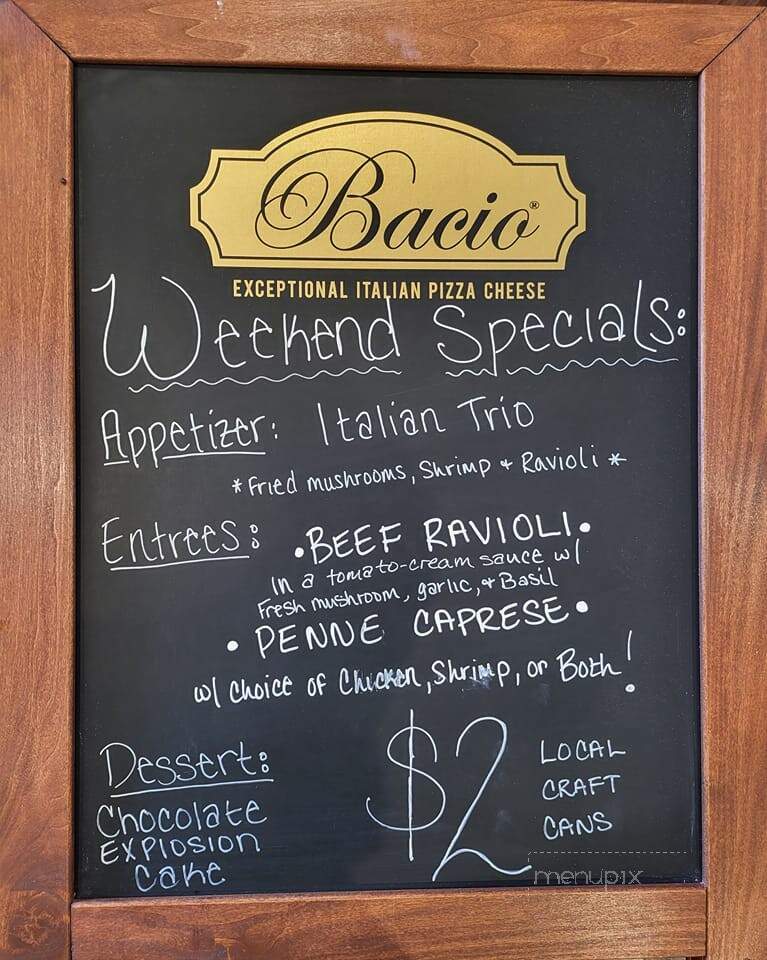 Bacio®
EXCEPTIONAL ITALIAN PIZZA CHEESE
Weekend Specials:
Appetizer: Italian Trio
*Fried mushrooms, Shrimp + Ravioli*
Entrees: •BEEF RAVIOLI•
In a tomato-cream sauce w/
Fresh mushroom, garlic, + Basil
• PENNE CAPRESE•
w/ choice of Chicken, Shrimp, or Both!
Dessert:
Chocolate
Explosion
Cake
$2
LOCAL
CRAFT
CANS
menupix